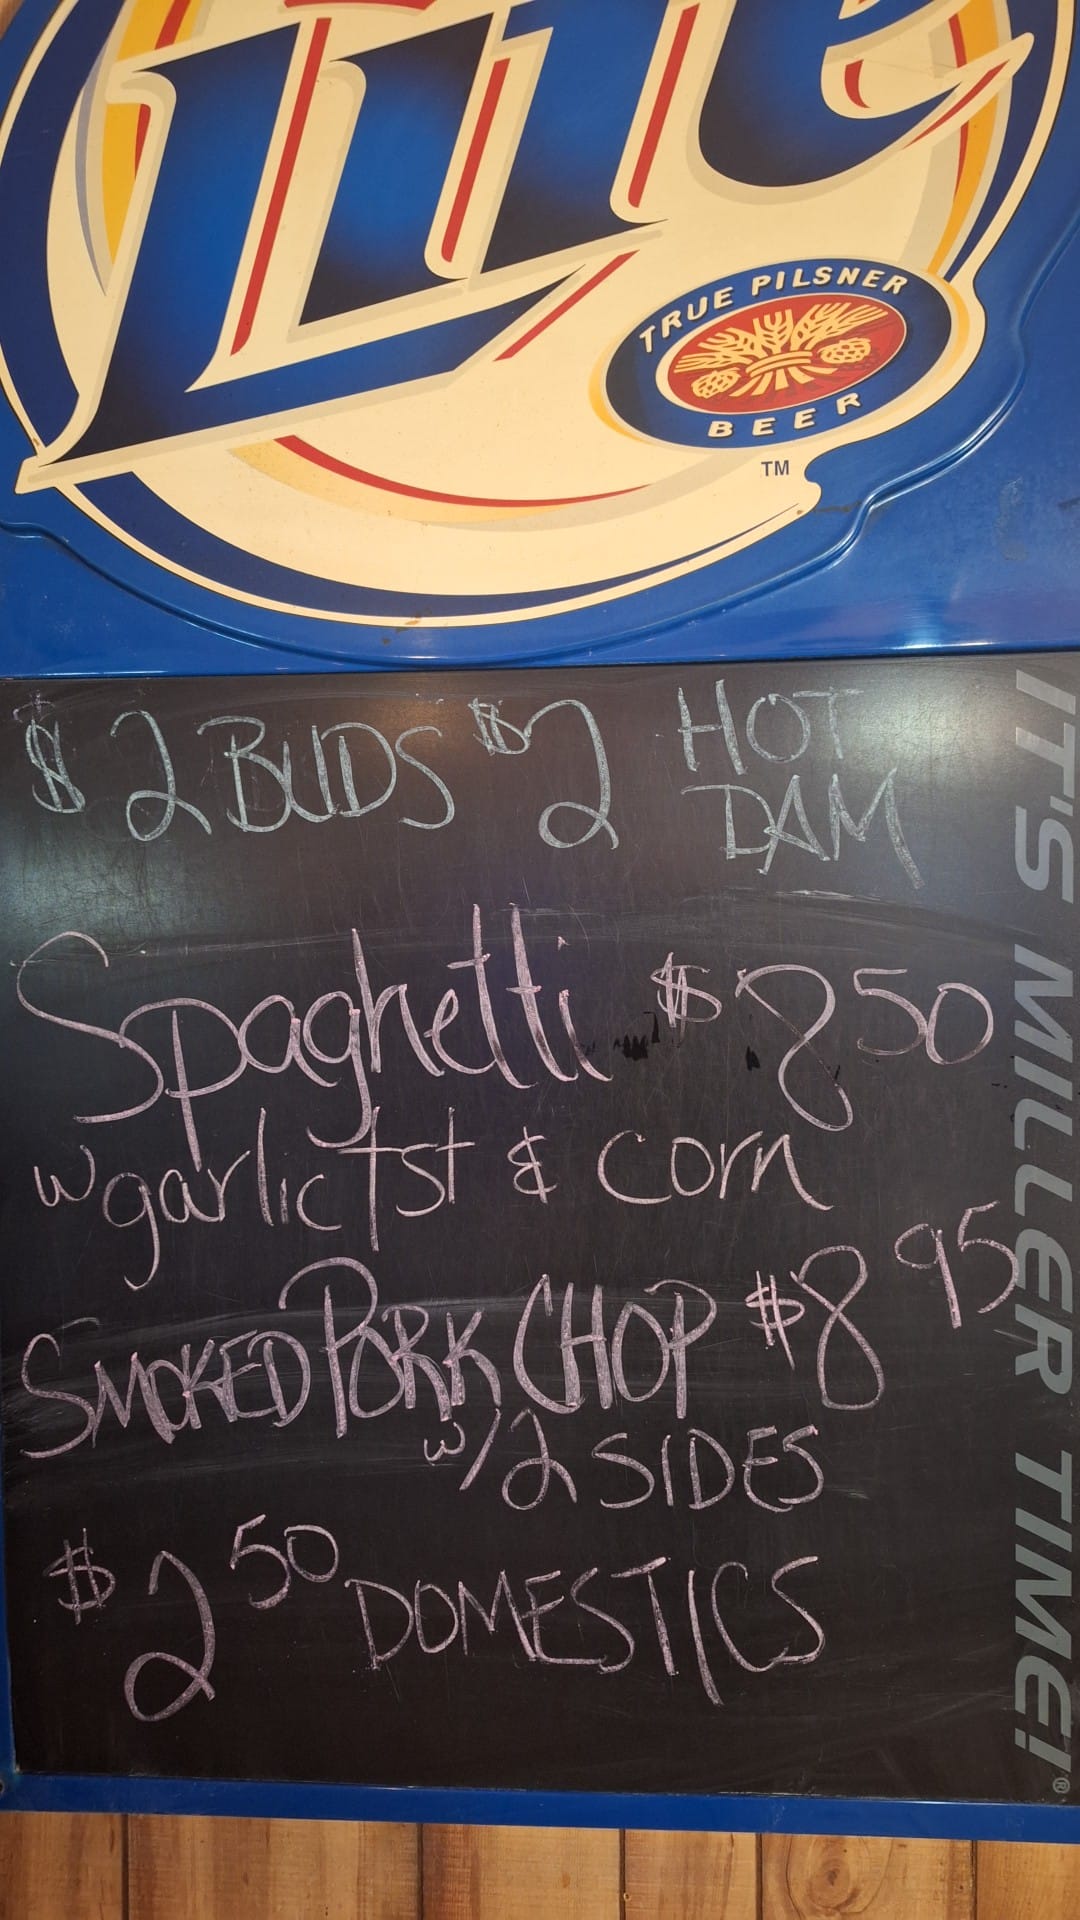 Lite
TRUE PILSNER
BEER
TM
$2 BUDS $2 HOT
DAM
Spaghetti $8 50
w garlic tst & corn
SMOKED PORK CHOP $8 95
w/ 2 SIDES
$2 50 DOMESTICS
IT'S MILLER TIME!®